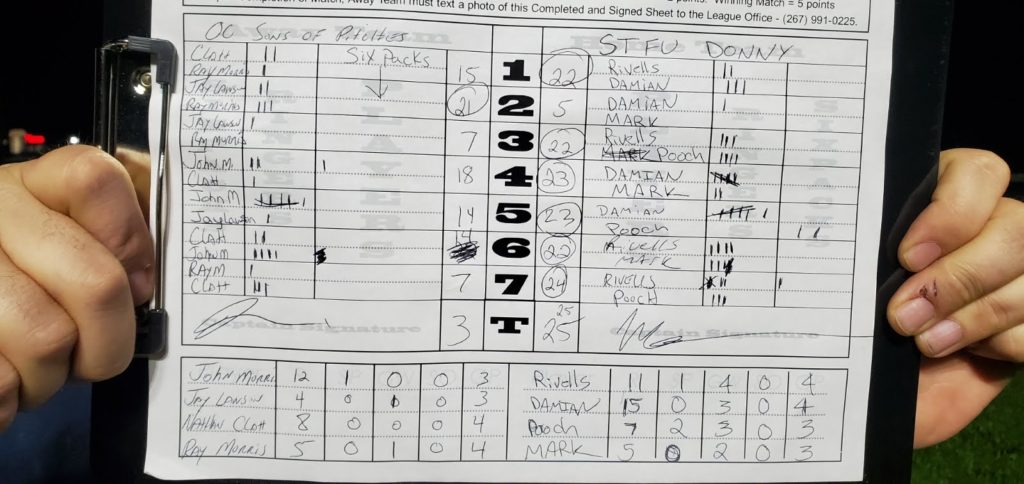 points. Winning Match = 5 points
Completion of Match, Away Team must text a photo of this Completed and Signed Sheet to the League Office - (267) 991-0225.
OC Sons of Pitches STFU DONNY
Clott || Six Packs 15 1 22 Rivells ||
Ray Morris | DAMIAN |||
Jay Lawson || 21 2 5 DAMIAN |
Ray Morris ||| MARK
Jay Lawson | 7 3 22 Rivells |||
Ray Morris Pooch ||||
John M. || | 18 4 23 DAMIAN
Clott | MARK ||
John M 14 5 23 DAMIAN
Jay Lawson | Pooch ||
Clott || 14 6 22 Rivells ||||
John M |||| MARK
RAY M | 7 7 24 RIVELLS
Clott ||| POOCH |||
Captain Signature 3 T 25 25 Captain Signature
John Morris 12 1 0 0 3 Rivells 11 1 4 0 4
Jay Lawson 4 0 1 0 3 DAMIAN 15 0 3 0 4
Nathan Clott 8 0 0 0 4 Pooch 7 2 3 0 3
Ray Morris 5 0 1 0 4 MARK 5 0 2 0 3